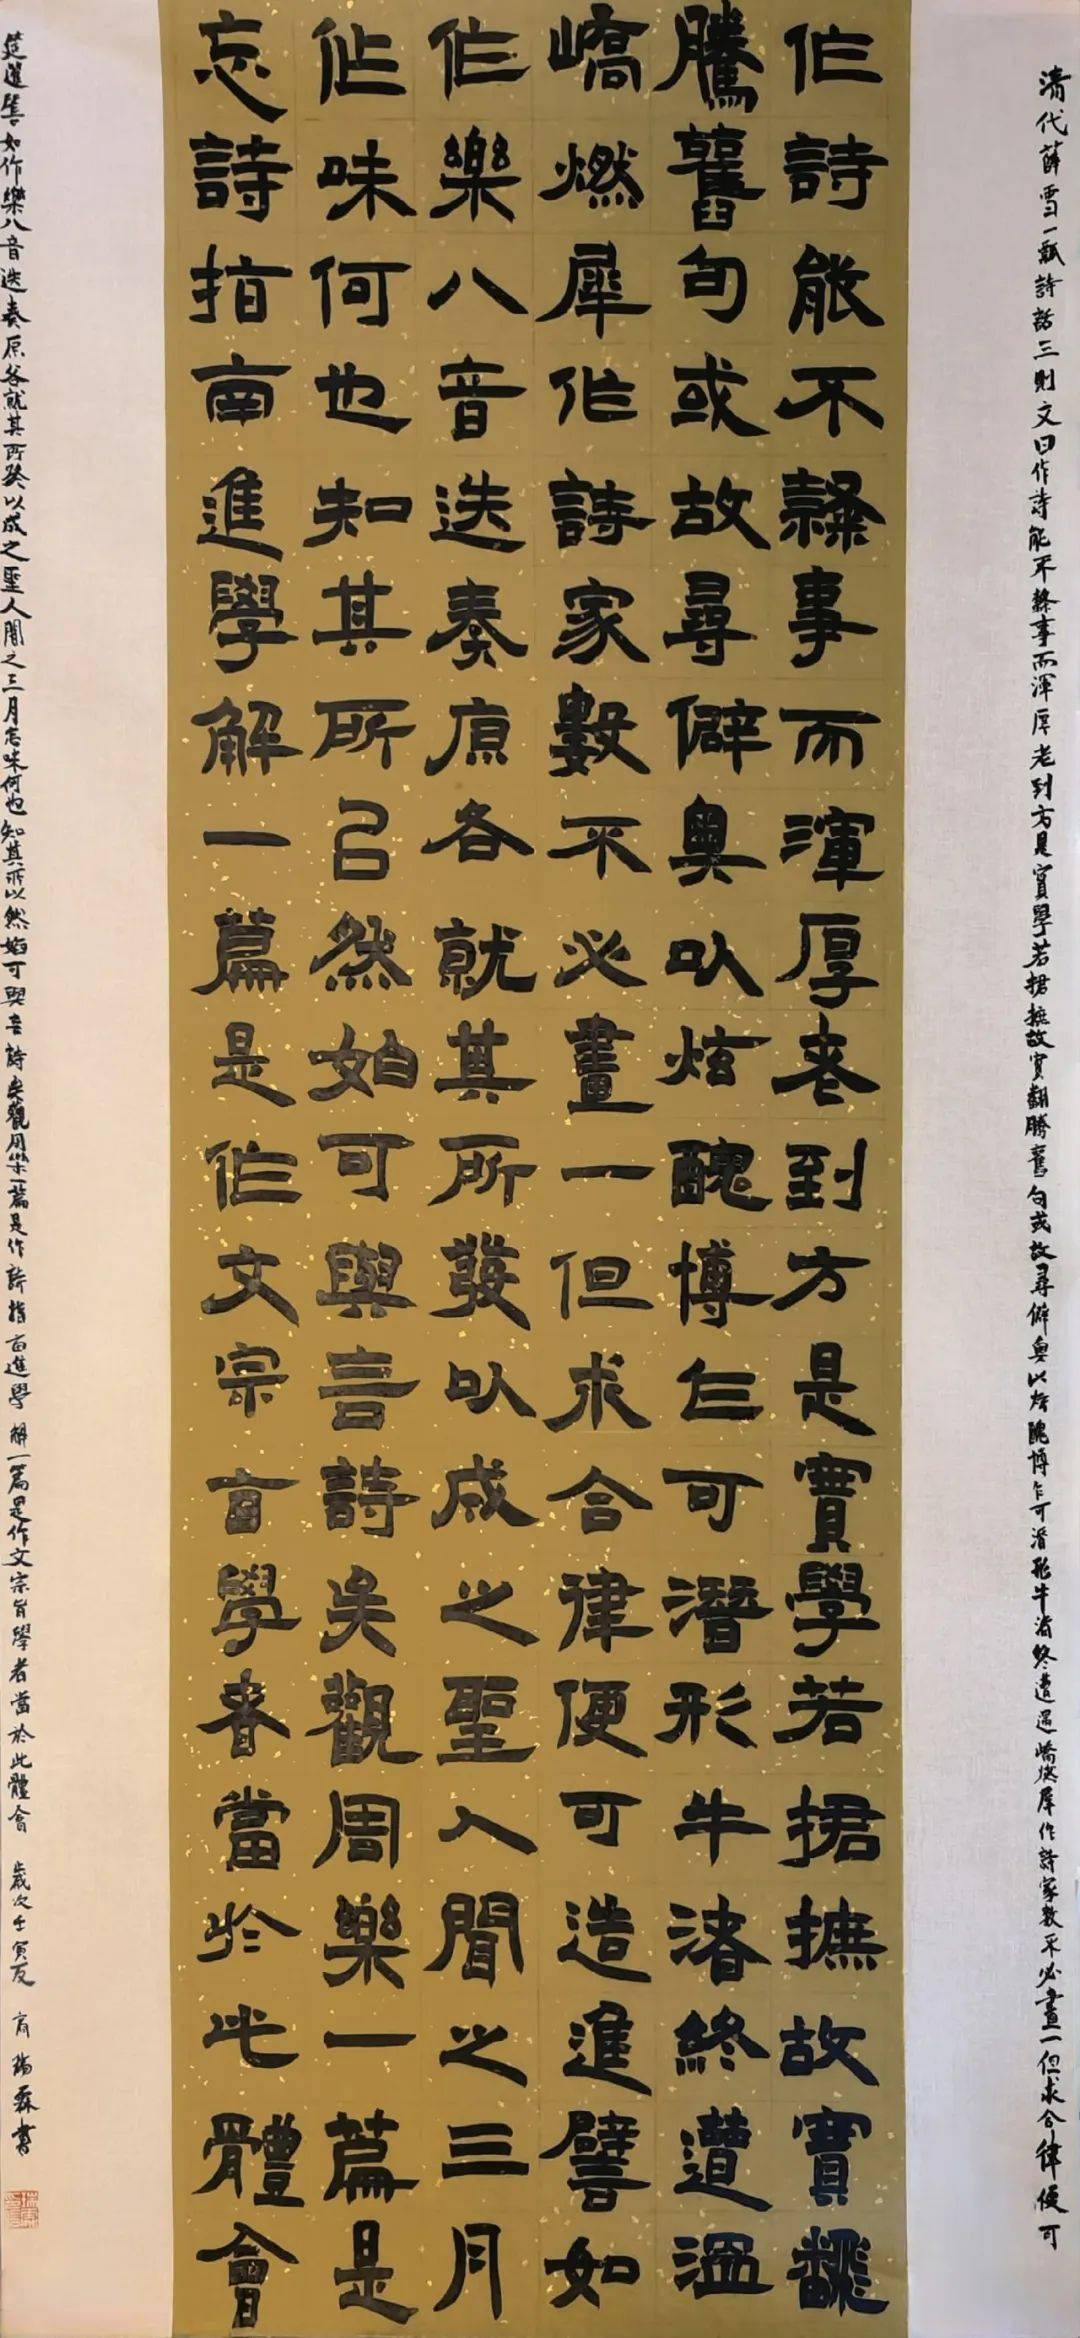 清代薛雪一瓢詩話三則文曰作詩能不隸事而渾厚老到方是實學若捃摭故實翻騰舊句或故尋僻奧以炫醜博乍可潛形牛渚終遭溫嶠燃犀作詩家數不必畫一但求合律便可
作詩能不隸事而渾厚老到方是實學若捃摭故實翻
騰舊句或故尋僻奧以炫醜博乍可潛形牛渚終遭溫
嶠燃犀作詩家數不必畫一但求合律便可造進譬如
作樂八音迭奏原各就其所發以成之聖人聞之三月
作味何也知其所以然始可與言詩矣觀周樂一篇是
忘詩指南進學解一篇是作文宗旨學者當於此體會
造進譬如作樂八音迭奏原各就其所發以成之聖人聞之三月忘味何也知其所以然始可與言詩矣觀周樂一篇是作詩指南進學解一篇是作文宗旨學者當於此體會 歲次壬寅夏 瑞霖書